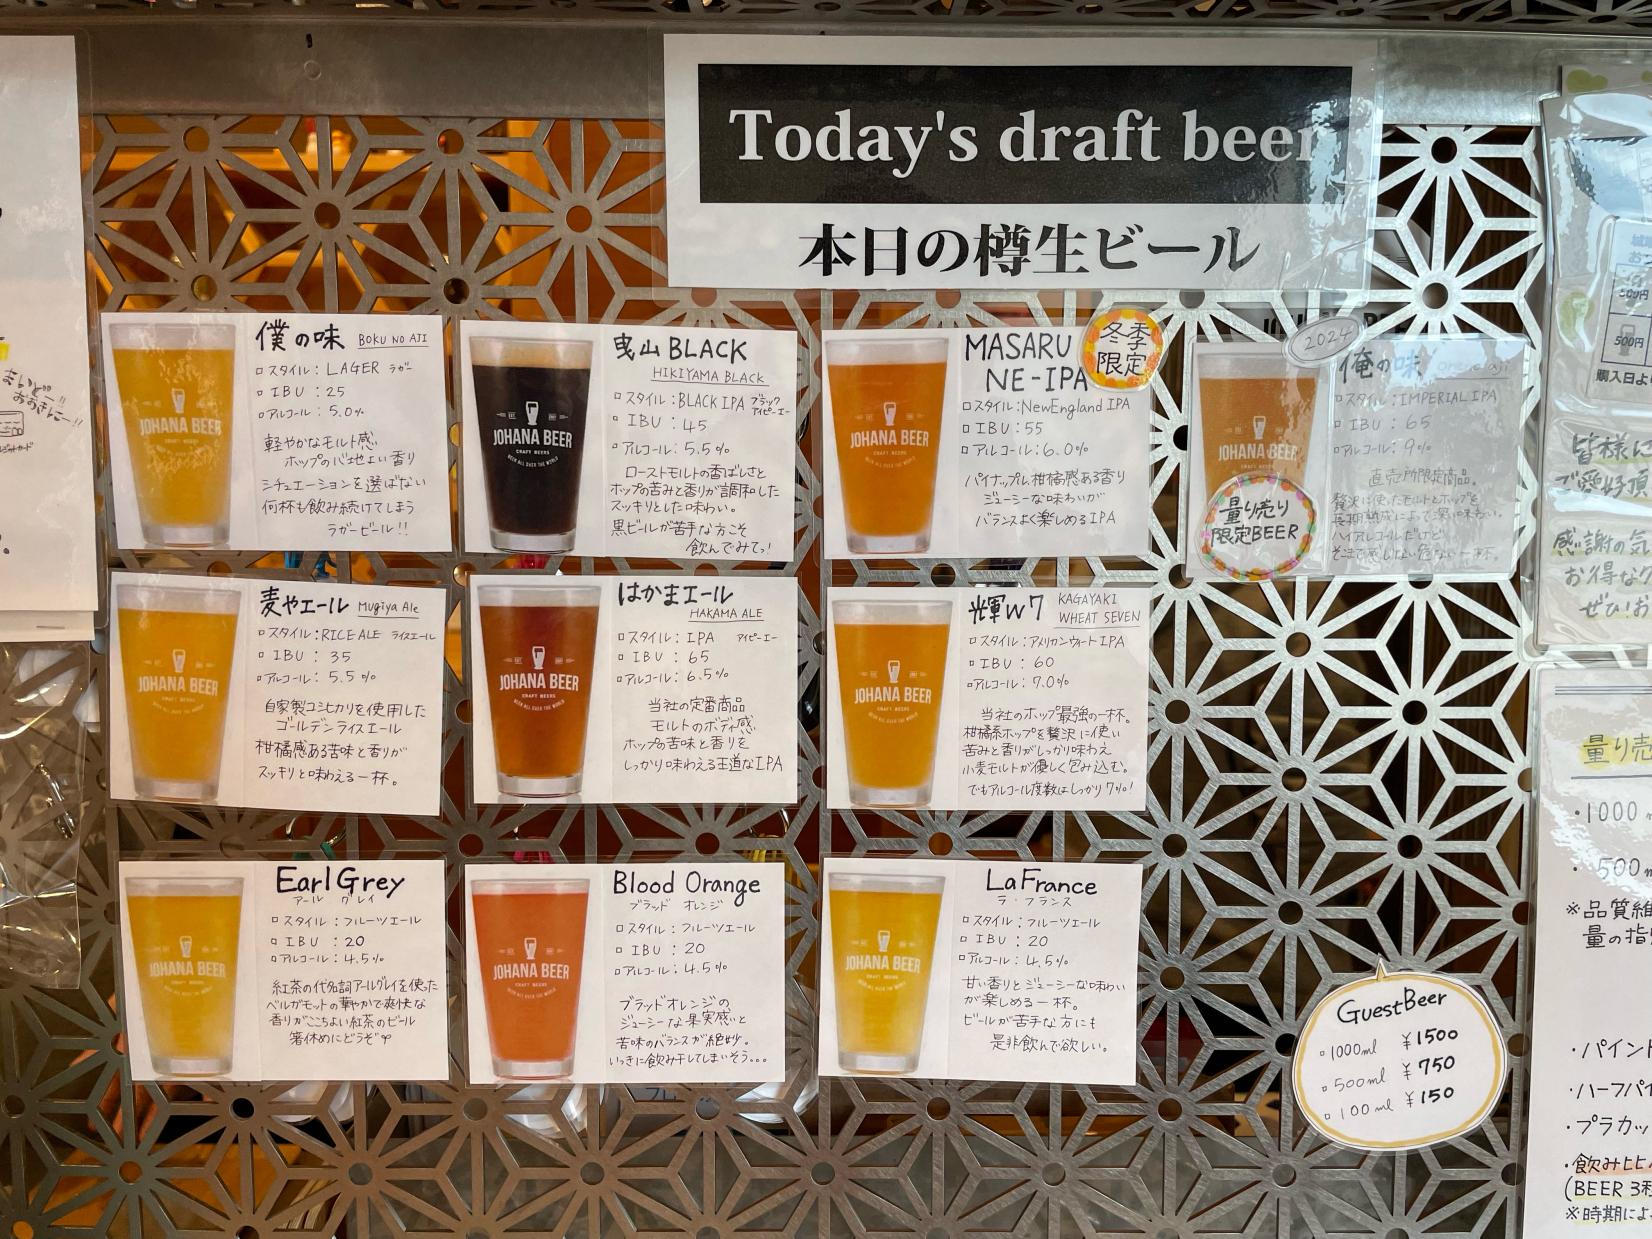 Today's draft beer
本日の樽生ビール
僕の味 BOKU NO AJI
スタイル:LAGER ラガー
IBU:25
アルコール:5.0%
軽やかなモルト感
ホップの心地よい香り
シチュエーションを選ばない
何杯も飲み続けてしまう
ラガービール!!
JOHANA BEER
CRAFT BEERS
曳山BLACK
HIKIYAMA BLACK
スタイル:BLACK IPA ブラックアイピーエー
IBU:45
アルコール:5.5%
ローストモルトの香ばしさと
ホップの苦みと香りが調和した
スッキリとした味わい。
黒ビールが苦手な方こそ
飲んでみてっ!
JOHANA BEER
CRAFT BEERS
BEER ALL OVER THE WORLD
MASARU
NE-IPA
冬季
限定
スタイル:NewEngland IPA
IBU:55
アルコール:6.0%
パイナップル柑橘感ある香り
ジューシーな味わいが
バランスよく楽しめるIPA
JOHANA BEER
CRAFT BEERS
2024
俺の味 Ore no aji
スタイル:IMPERIAL IPA
IBU:65
アルコール:9%
直売所限定商品。
贅沢に使ったモルトとホップを
長期熟成によって深い味わい。
ハイアルコールだけど
一杯。
JOHANA BEER
量り売り
限定BEER
麦やエール Mugiya Ale
スタイル:RICE ALE ライスエール
IBU:35
アルコール:5.5%
自家製コシヒカリを使用した
ゴールデンライスエール
柑橘感ある苦味と香りが
スッキリと味わえる一杯。
JOHANA BEER
CRAFT BEERS
BEER ALL OVER THE WORLD
はかまエール
HAKAMA ALE
スタイル:IPA アイピーエー
IBU:65
アルコール:6.5%
当社の定番商品
モルトのボディ感
ホップの苦味と香りを
しっかり味わえる王道なIPA
JOHANA BEER
CRAFT BEERS
BEER ALL OVER THE WORLD
輝W7 KAGAYAKI
WHEAT SEVEN
スタイル:アメリカンウィートIPA
IBU:60
アルコール:7.0%
当社のホップ最強の一杯。
柑橘系ホップを贅沢に使い
苦みと香りがしっかり味わえ
小麦モルトが優しく包み込む。
でもアルコール度数はしっかり7%!
JOHANA BEER
CRAFT BEERS
BEER ALL OVER THE WORLD
Earl Grey
アール グレイ
スタイル:フルーツエール
IBU:20
アルコール:4.5%
紅茶の代名詞アールグレイを使った
ベルガモットの華やかで爽快な
香りがここちよい紅茶のビール
箸休めにどうぞ
JOHANA BEER
CRAFT BEERS
BEER ALL OVER THE WORLD
Blood Orange
ブラッド オレンジ
スタイル:フルーツエール
IBU:20
アルコール:4.5%
ブラッドオレンジの
ジューシーな果実感と
苦味のバランスが絶妙。
いっきに飲み干してしまいそう...
JOHANA BEER
CRAFT BEERS
BEER ALL OVER THE WORLD
La France
ラ・フランス
スタイル:フルーツエール
IBU:20
アルコール:4.5%
甘い香りとジューシーな味わい
が楽しめる一杯。
ビールが苦手な方にも
是非飲んで欲しい。
JOHANA BEER
CRAFT BEERS
BEER ALL OVER THE WORLD
GuestBeer
1000ml ¥1500
500ml ¥750
100ml ¥150
まいどー!!
おおきにー!!
500円
500円
購入日よ
皆様に
ご愛好頂
感謝の気
お得な
ぜひ!お
量り売
・1000
・500
※品質維
量の指
・パイント
・ハーフパイ
・プラカッ
・飲み比べ
(BEER 3種
※時期によ